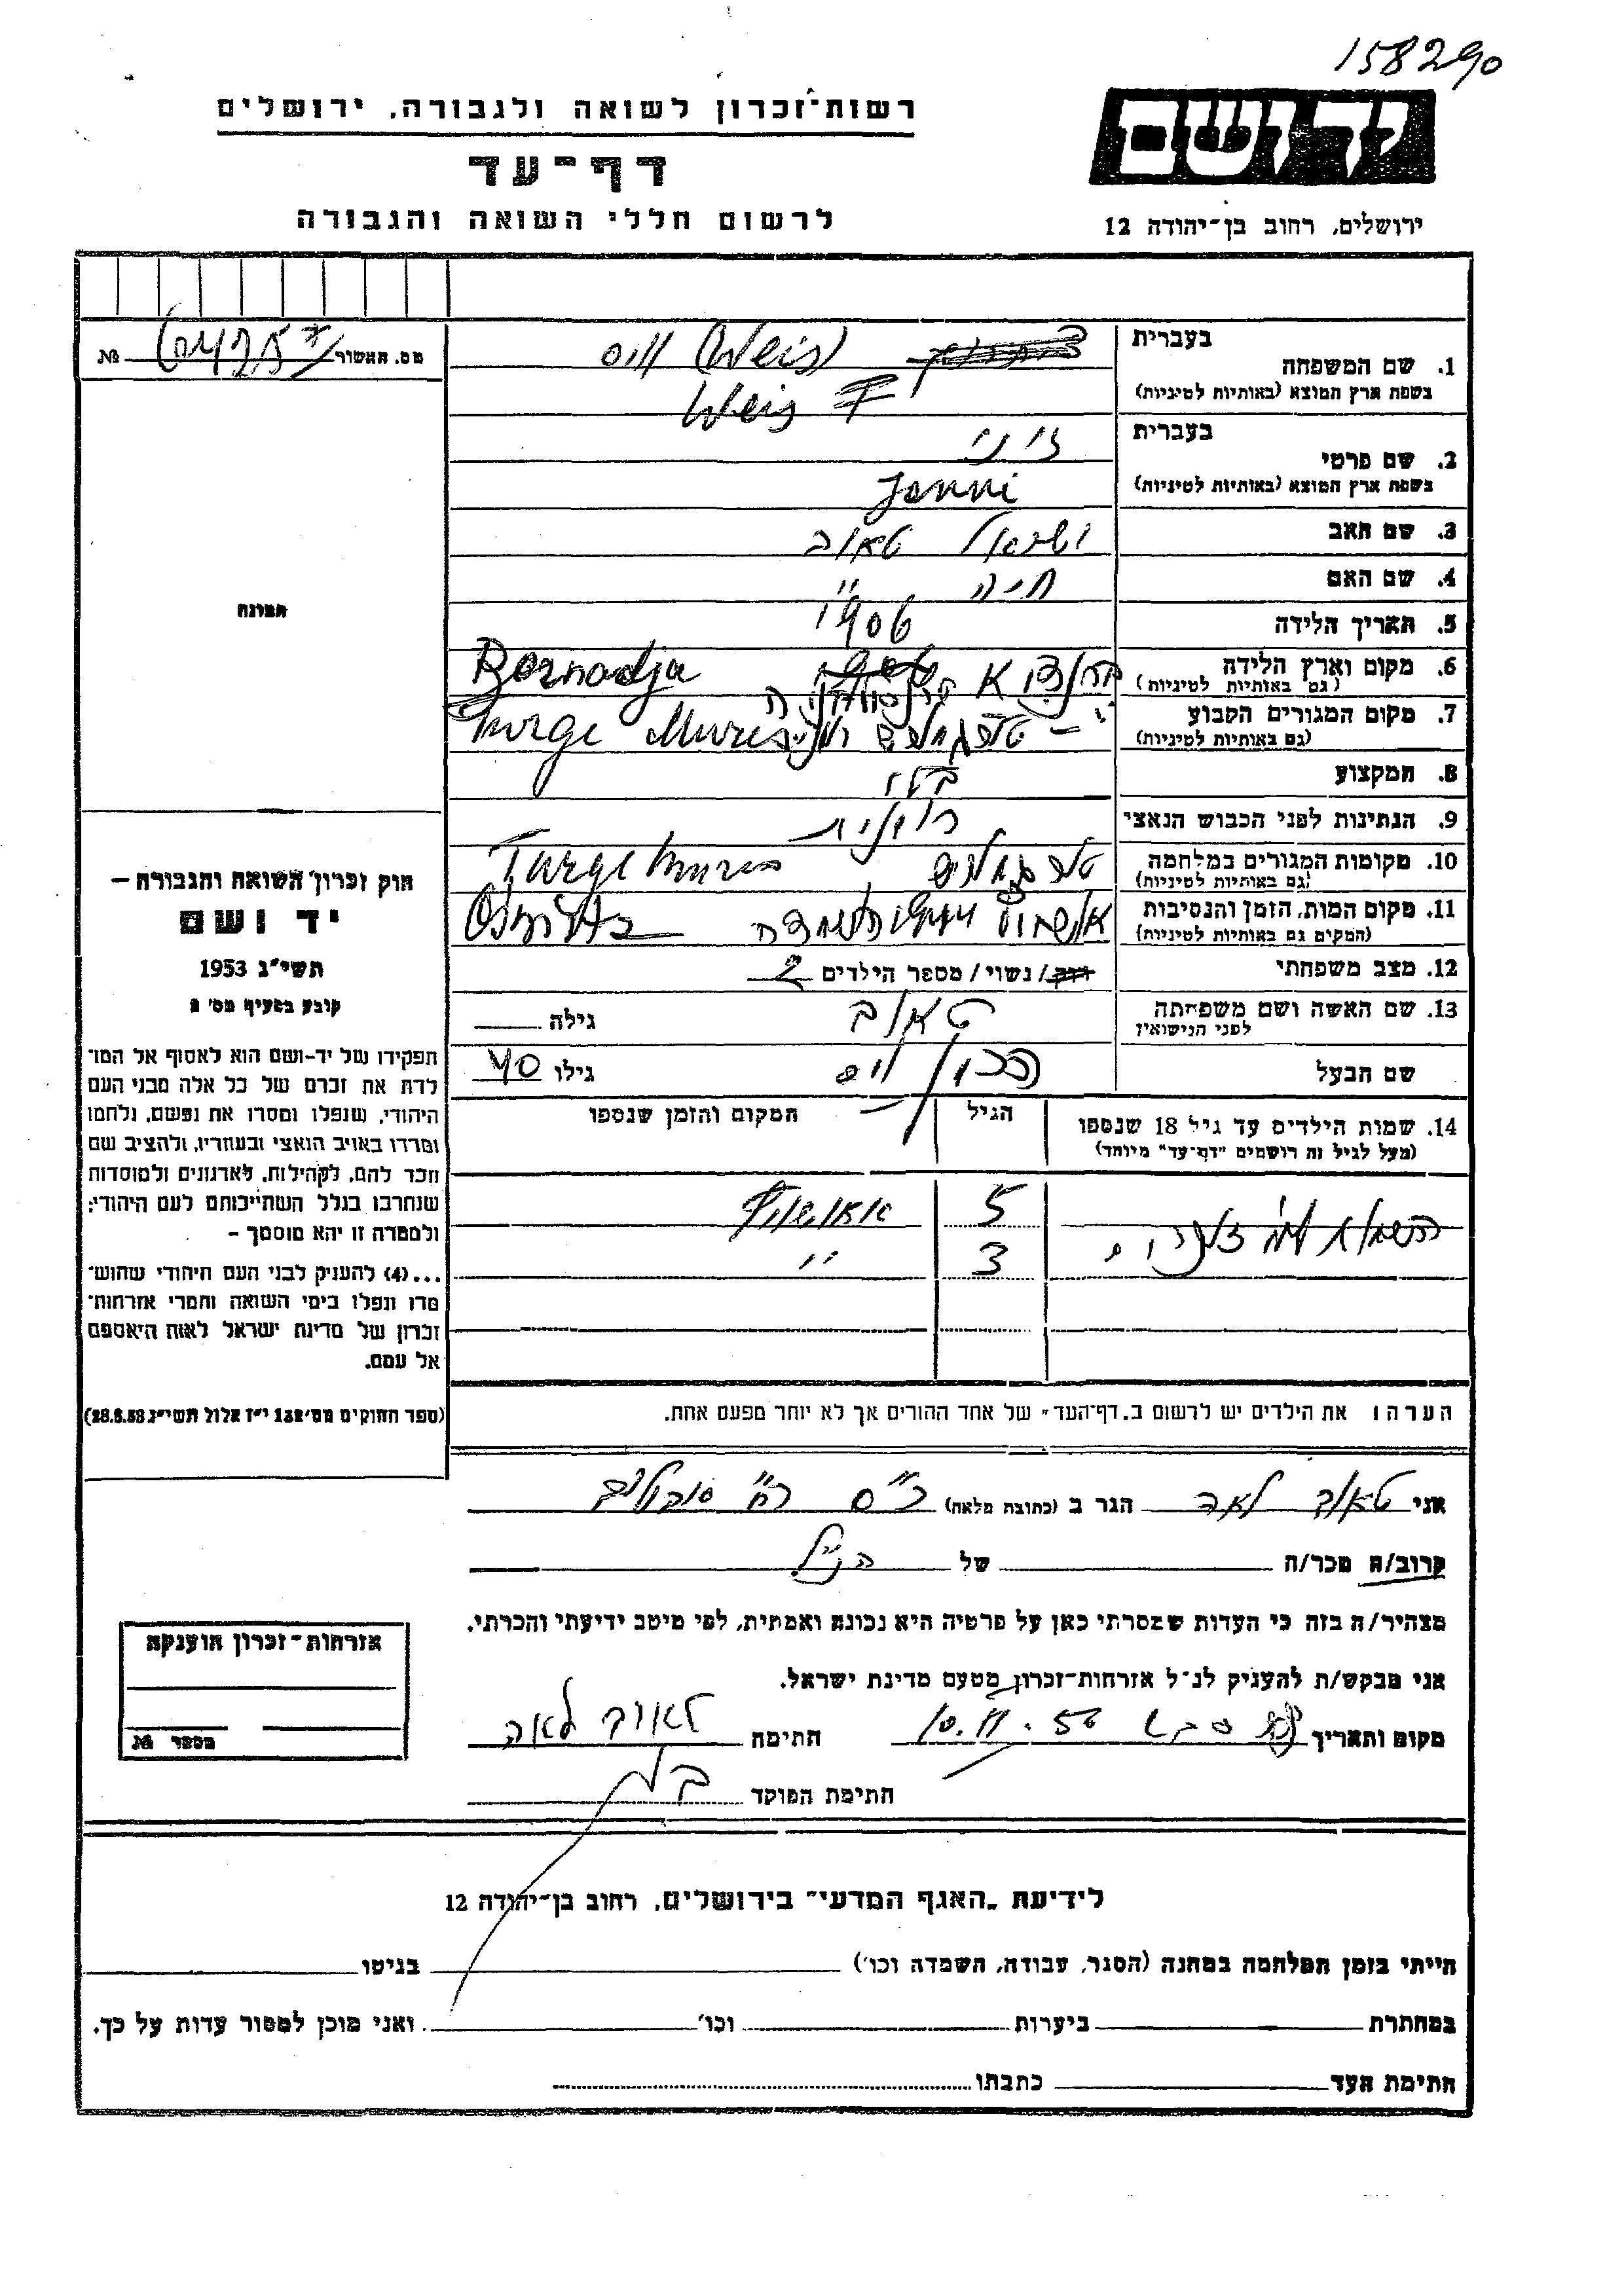 158290
רשות־זכרון לשואה ולגבורה, ירושלים
יד ושם
דף־עד
לרשום חללי השואה והגבורה
ירושלים, רחוב בן־יהודה 12
בעברית
1. שם המשפחה
וויס (Weis)
מס. האשור
№
(בשפת ארץ המוצא (באותיות לטיניות
Weis
בעברית
2. שם פרטי
ז'ני
(בשפת ארץ המוצא (באותיות לטיניות
Jenni
3. שם האב
ישראל טאוב
4. שם האם
חיה "
תמונה
5. תאריך הלידה
1906
6. מקום וארץ הלידה
(גם באותיות לטיניות)
7. מקום המגורים הקבוע
(גם באותיות לטיניות)
8. המקצוע
9. הנתינות לפני הכבוש הנאצי
10. מקומות המגורים במלחמה
(גם באותיות לטיניות)
Turge Mures
11. מקום המות, הזמן והנסיבות
(המקום גם באותיות לטיניות)
12. מצב משפחתי
רוק/ נשוי/ מספר הילדים 2
13. שם האשה ושם משפחתה
לפני הנישואין
טאוב
גילה
שם הבעל
וויס
גילו 40
14. שמות הילדים עד גיל 18 שנספו
(מעל לגיל זה רושמים "דף־עד" מיוחד)
הגיל
המקום והזמן שנספו
5
3 "
חוק זכרון השואה והגבורה —
יד ושם
תשי"ג 1953
קובע בסעיף מס' 2
תפקידו של יד־ושם הוא לאסוף אל המו־
לדת את זכרם של כל אלה מבני העם
היהודי, שנפלו ומסרו את נפשם, נלחמו
ומרדו באויב הנאצי ובעוזריו, ולהציב שם
וזכר להם, לקהילות, לארגונים ולמוסדות
שנחרבו בגלל השתייכותם לעם היהודי;
ולמטרה זו יהא מוסמך —
...(4) להעניק לבני העם היהודי שהוש־
מדו ונפלו בימי השואה והמרי אזרחות־
זכרון של מדינת ישראל לאות היאספם
אל עמם.
(ספר החוקים מס' 132 י"ז אלול תשי"ג 28.8.53)
הערה: את הילדים יש לרשום ב„דף־העד" של אחד ההורים אך לא יותר מפעם אחת.
אני טאוב לאה הגר ב (כתובת מלאה)
קרוב/ה מכר/ה של הנ"ל
מצהיר/ה בזה כי העדות שמסרתי כאן על פרטיה היא נכונה ואמתית, לפי מיטב ידיעתי והכרתי.
אני מבקש/ת להעניק לנ"ל אזרחות־זכרון מטעם מדינת ישראל.
מקום ותאריך כפר סבא 10.11.56 חתימה טאוב לאה
חתימת הפוקד
אזרחות־זכרון הוענקה
מספר №
לידיעת „האגף המדעי" בירושלים, רחוב בן־יהודה 12
הייתי בזמן המלחמה במחנה (הסגר, עבודה, השמדה וכו') בגיטו
במחתרת ביערות וכו' ואני מוכן למסור עדות על כך.
חתימת העד כתבתו